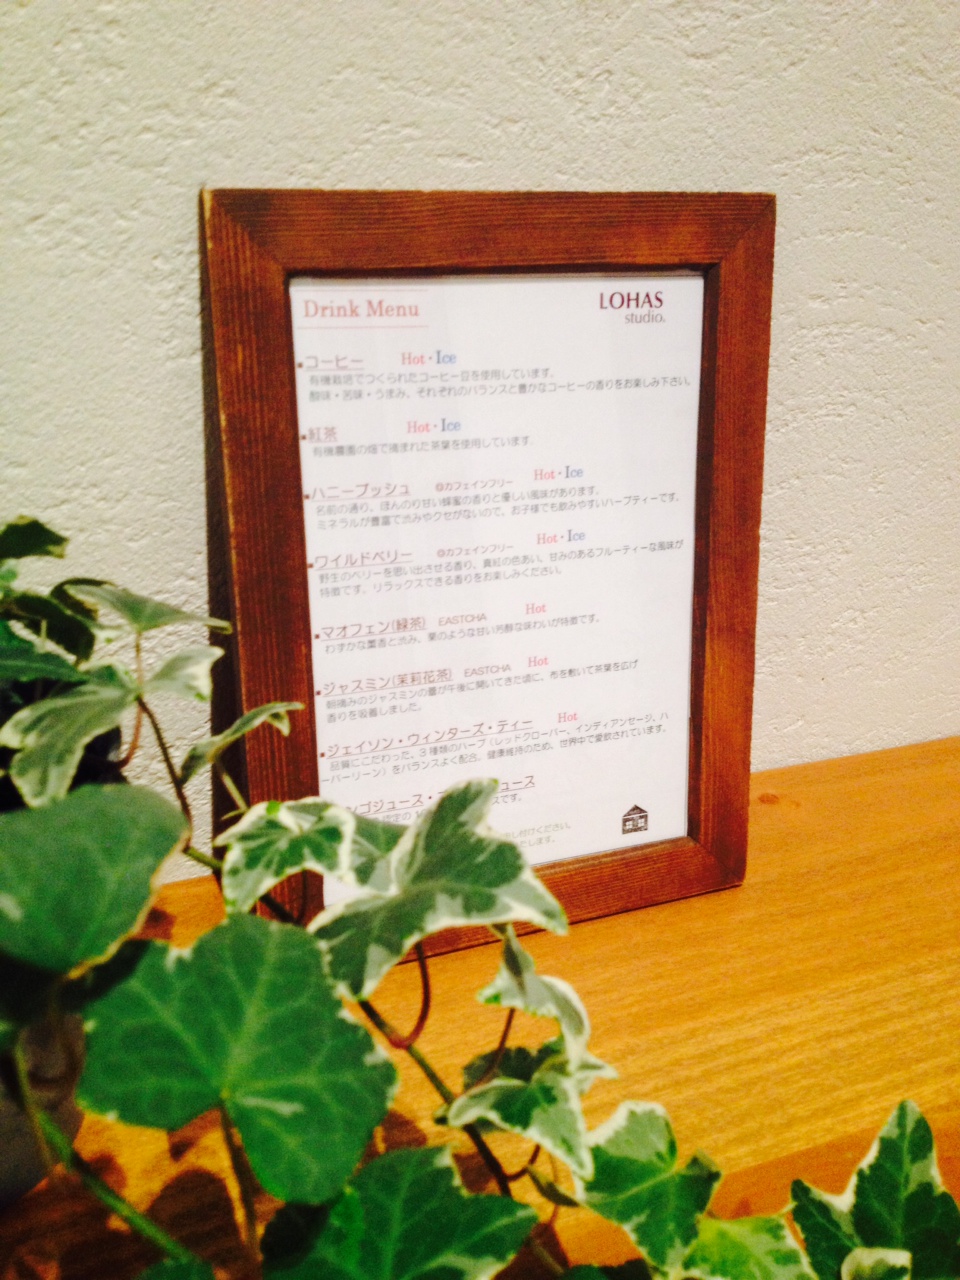 Drink Menu
LOHAS
studio.
コーヒー Hot・Ice
有機栽培でつくられたコーヒー豆を使用しています。
酸味・苦味・うまみ、それぞれのバランスと豊かなコーヒーの香りをお楽しみ下さい。
紅茶 Hot・Ice
有機農園の畑で摘まれた茶葉を使用しています。
ハニーブッシュ @カフェインフリー Hot・Ice
名前の通り、ほんのり甘い蜂蜜の香りと優しい風味があります。
ミネラルが豊富で渋みやクセがないので、お子様でも飲みやすいハーブティーです。
ワイルドベリー @カフェインフリー Hot・Ice
野生のベリーを思い出させる香り、真紅の色あい、甘みのあるフルーティーな風味が
特徴です。リラックスできる香りをお楽しみください。
マオフェン(緑茶) EASTCHA Hot
わずかな薫香と渋み、栗のような甘い芳醇な味わいが特徴です。
ジャスミン(茉莉花茶) EASTCHA Hot
朝摘みのジャスミンの蕾が午後に開いてきた頃に、布を敷いて茶葉を広げ
香りを吸着しました。
ジェイソン・ウィンターズ・ティー Hot
品質にこだわった、3種類のハーブ(レッドクローバー、インディアンセージ、ハ
ーバリーン)をバランスよく配合。健康維持のため、世界中で愛飲されています。
ンゴジュース・ ュース
認定の スです。
し付けください。
たします。